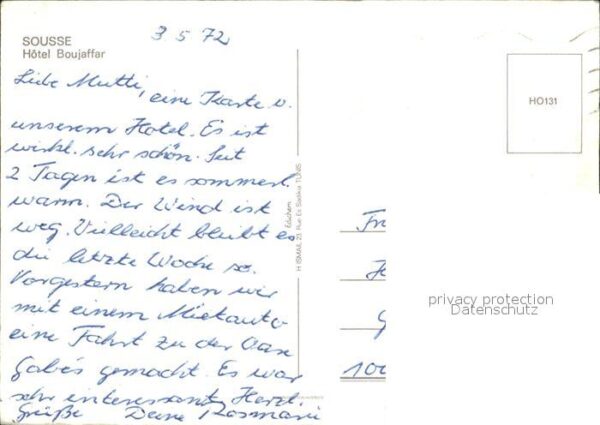 SOUSSE
Hôtel Boujaffar
3 5 72
Liebe Mutti,
eine Karte v.
unserem Hotel. Es ist
wirkl. sehr schön. Seit
2 Tagen ist es sommerl.
warm. Der Wind ist
weg. Vielleicht bleibt es
die letzte Woche so.
Vorgestern haben wir
mit einem Mietauto
eine Fahrt zu der Oase
Gabés gemacht. Es war
sehr interessant. Herzl.
Grüße Deine Rosmarie
Edichem
H. ISMAIL 20, Rue Es Sadikia TUNIS
HO131
Fr
H
G
100
privacy protection
Datenschutz